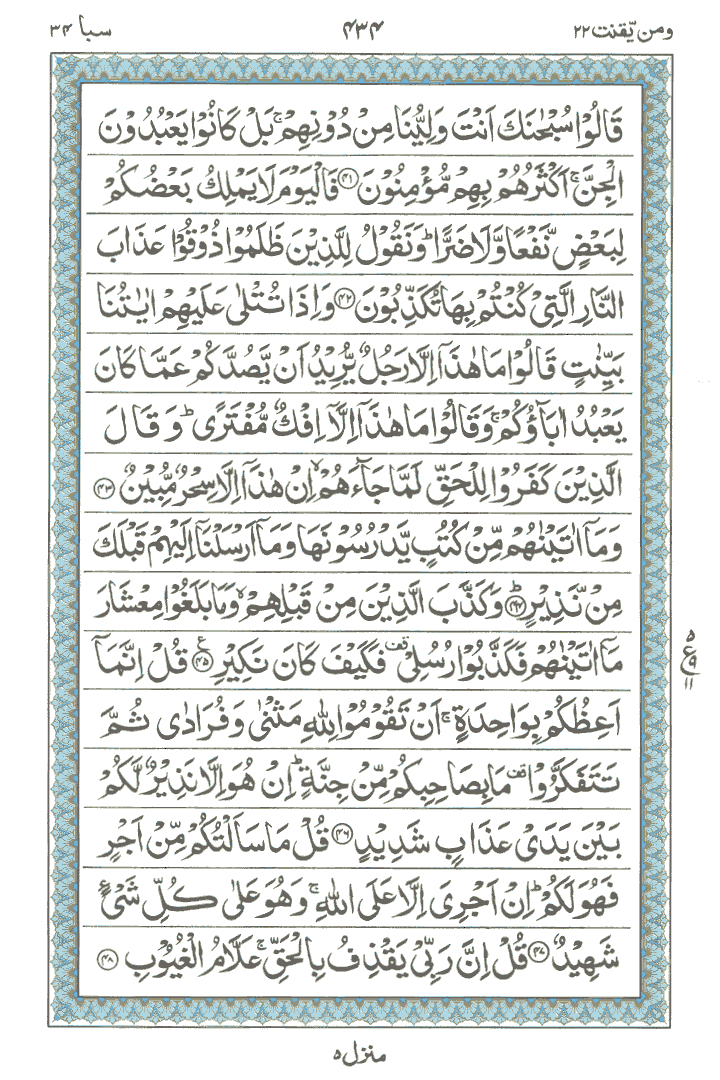 ومن یّقنت ۲۲
۴۳۴
سبا ۳۴
قَالُوْا سُبْحٰنَكَ اَنْتَ وَلِیُّنَا مِنْ دُوْنِهِمْ ۚ بَلْ كَانُوْا یَعْبُدُوْنَ
الْجِنَّ ۚ اَكْثَرُهُمْ بِهِمْ مُّؤْمِنُوْنَ ﴿۴۱﴾ فَالْیَوْمَ لَا یَمْلِكُ بَعْضُكُمْ
لِبَعْضٍ نَّفْعًا وَّلَا ضَرًّا ؕ وَنَقُوْلُ لِلَّذِیْنَ ظَلَمُوْا ذُوْقُوْا عَذَابَ
النَّارِ الَّتِیْ كُنْتُمْ بِهَا تُكَذِّبُوْنَ ﴿۴۲﴾ وَاِذَا تُتْلٰی عَلَیْهِمْ اٰیٰتُنَا
بَیِّنٰتٍ قَالُوْا مَا هٰذَاۤ اِلَّا رَجُلٌ یُّرِیْدُ اَنْ یَّصُدَّكُمْ عَمَّا كَانَ
یَعْبُدُ اٰبَآؤُكُمْ ۚ وَقَالُوْا مَا هٰذَاۤ اِلَّاۤ اِفْكٌ مُّفْتَرًی ؕ وَقَالَ
الَّذِیْنَ كَفَرُوْا لِلْحَقِّ لَمَّا جَآءَهُمْ ۙ اِنْ هٰذَاۤ اِلَّا سِحْرٌ مُّبِیْنٌ ﴿۴۳﴾
وَمَاۤ اٰتَیْنٰهُمْ مِّنْ كُتُبٍ یَّدْرُسُوْنَهَا وَمَاۤ اَرْسَلْنَاۤ اِلَیْهِمْ قَبْلَكَ
مِنْ نَّذِیْرٍ ﴿۴۴﴾ؕ وَكَذَّبَ الَّذِیْنَ مِنْ قَبْلِهِمْ ۙ وَمَا بَلَغُوْا مِعْشَارَ
مَاۤ اٰتَیْنٰهُمْ فَكَذَّبُوْا رُسُلِیْ قف فَكَیْفَ كَانَ نَكِیْرِ ﴿۴۵﴾ ع قُلْ اِنَّمَاۤ
اَعِظُكُمْ بِوَاحِدَةٍ ۚ اَنْ تَقُوْمُوْا لِلّٰهِ مَثْنٰی وَفُرَادٰی ثُمَّ
تَتَفَكَّرُوْا قف مَا بِصَاحِبِكُمْ مِّنْ جِنَّةٍ ؕ اِنْ هُوَ اِلَّا نَذِیْرٌ لَّكُمْ
بَیْنَ یَدَیْ عَذَابٍ شَدِیْدٍ ﴿۴۶﴾ قُلْ مَا سَاَلْتُكُمْ مِّنْ اَجْرٍ
فَهُوَ لَكُمْ ؕ اِنْ اَجْرِیَ اِلَّا عَلَی اللّٰهِ ۚ وَهُوَ عَلٰی كُلِّ شَیْءٍ
شَهِیْدٌ ﴿۴۷﴾ قُلْ اِنَّ رَبِّیْ یَقْذِفُ بِالْحَقِّ ۚ عَلَّامُ الْغُیُوْبِ ﴿۴۸﴾
۵
ع ۹
۱۱
منزل ۵